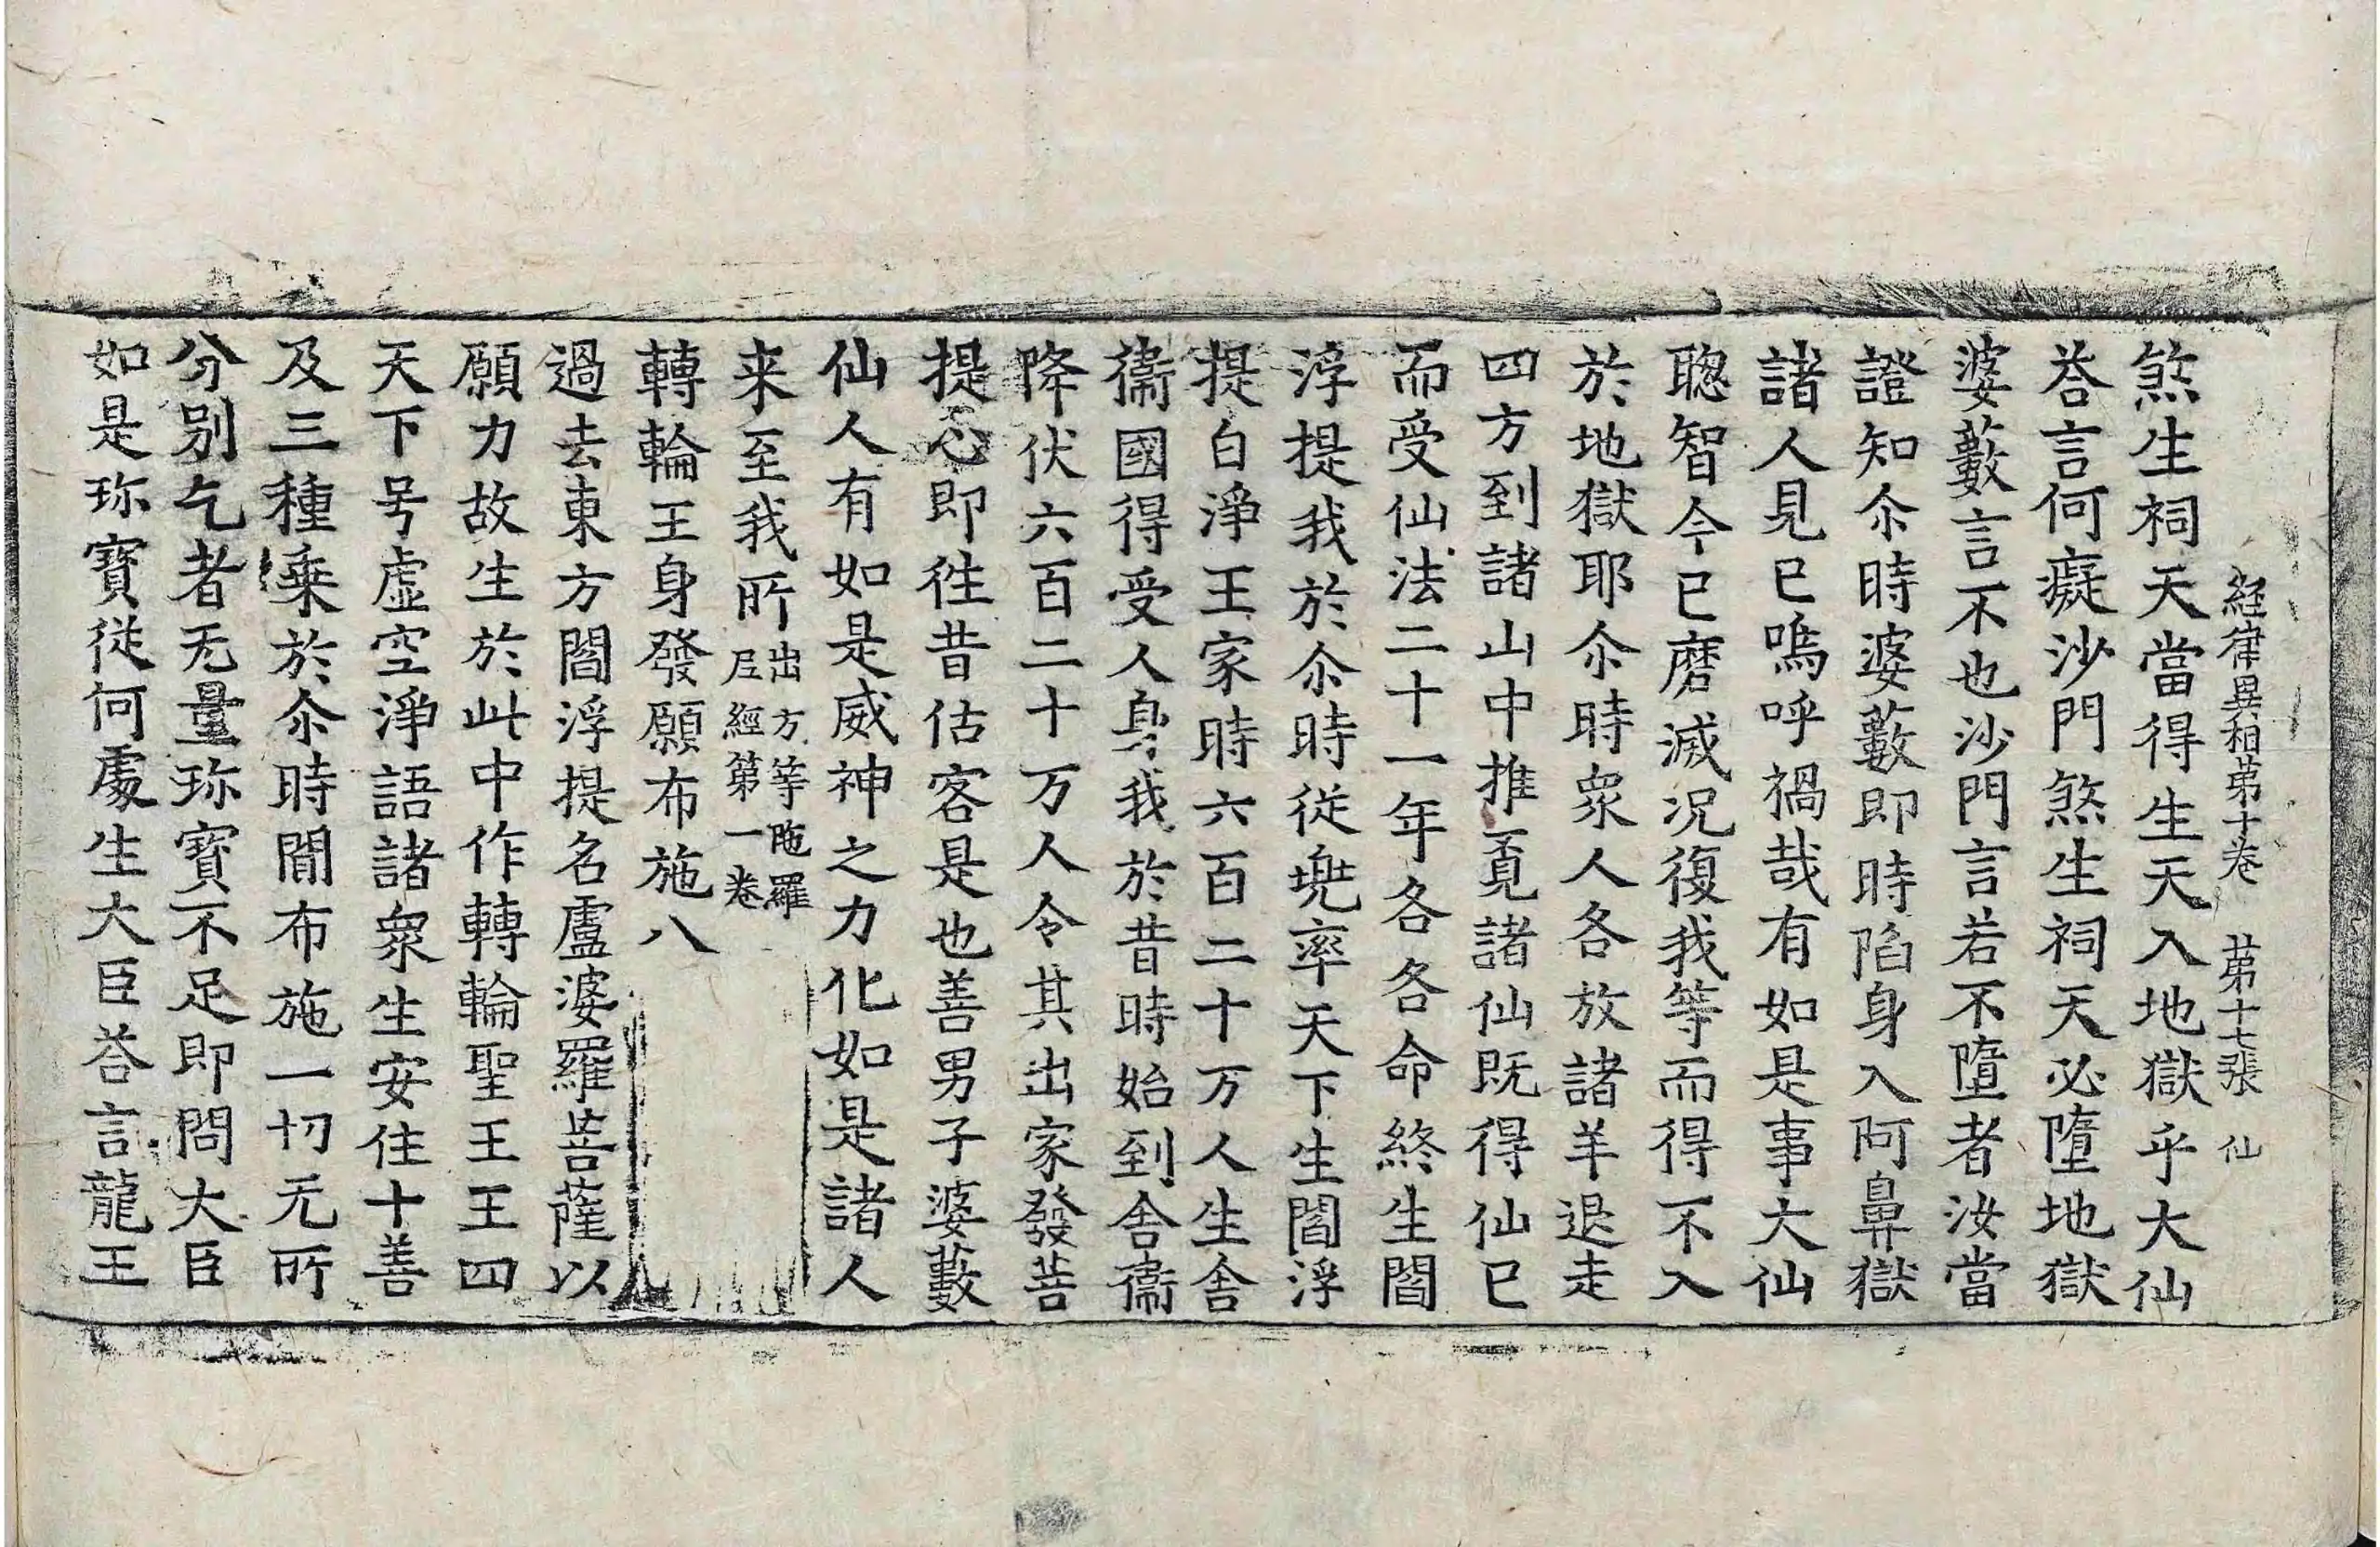 經律異相第十卷 第十七張 仙
煞生祠天當得生天入地獄乎大仙
荅言何癡沙門煞生祠天必墮地獄
婆藪言不也沙門言若不墮者汝當
證知尒時婆藪即時陷身入阿鼻獄
諸人見已嗚呼禍哉有如是事大仙
聰智今已磨滅况復我等而得不入
於地獄耶尒時衆人各放諸羊退走
四方到諸山中推覔諸仙既得仙已
而受仙法二十一年各各命終生閻
浮提我於尒時從兠率天下生閻浮
提白淨王家時六百二十万人生舍
衞國得受人身我於昔時始到舍衞
降伏六百二十万人令其出家發菩
提心即徃昔估客是也善男子婆藪
仙人有如是威神之力化如是諸人
来至我所出方等陁羅尼經第一卷
轉輪王身發願布施八
過去東方閻浮提名盧婆羅菩薩以
願力故生於此中作轉輪聖王王四
天下号虛空淨語諸衆生安住十善
及三種乗於尒時閒布施一切无所
分別乞者无量珎寳不足即問大臣
如是珎寳從何處生大臣荅言龍王